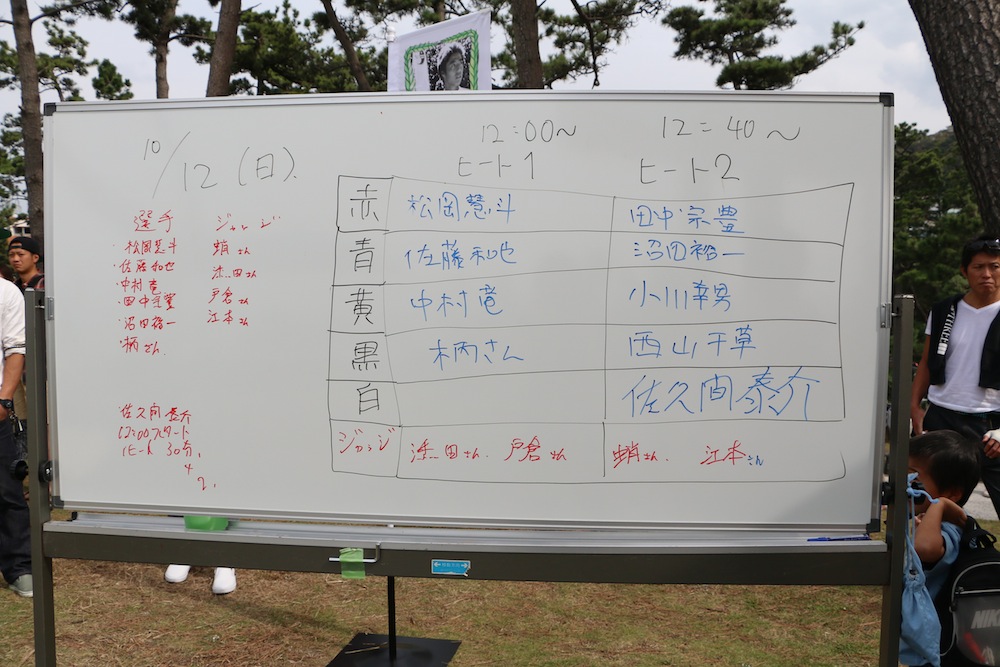 10/12(日).
12:00〜 12:40〜
ヒート1 ヒート2
選手 ジャッジ
・松岡慧斗 蛸さん
・佐藤和也 浜田さん
・中村竜 戸倉さん
・田中宗豊 江本さん
・沼田裕一
・柄さん
佐久間泰介
12:00スタート
1ヒート 30分.
4
2.
赤 松岡慧斗 田中宗豊
青 佐藤和也 沼田裕一
黄 中村竜 小川幸男
黒 柄さん 西山千草
白 佐久間泰介
ジャッジ 浜田さん 戸倉さん 蛸さん 江本さん
NIKE